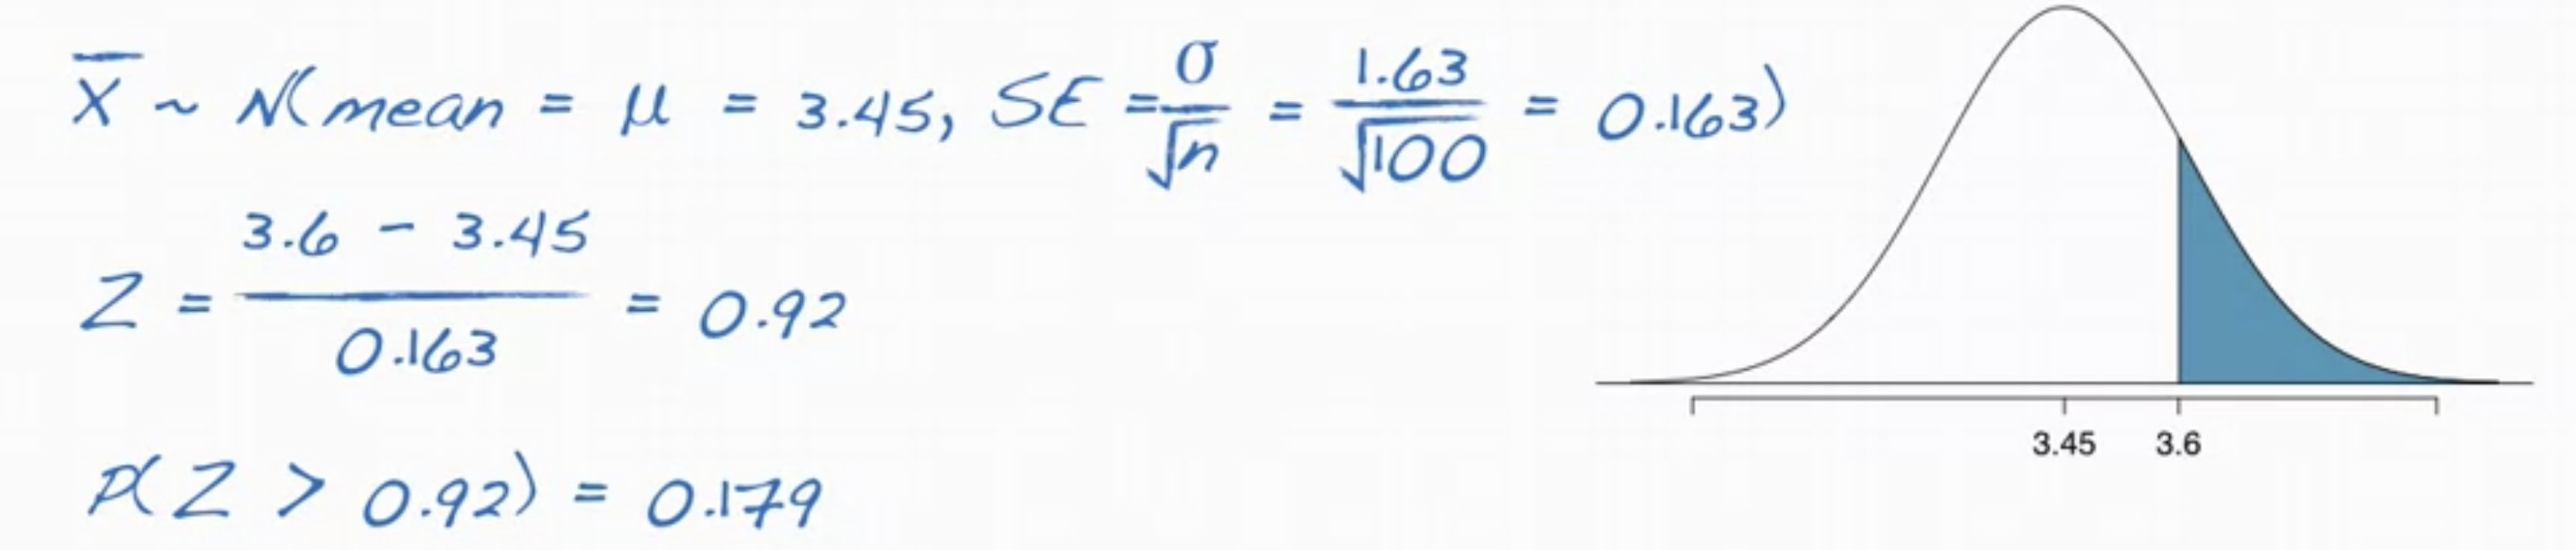 X̄ ~ N(mean = μ = 3.45, SE = σ/√n = 1.63/√100 = 0.163)
Z = (3.6 - 3.45)/0.163 = 0.92
P(Z > 0.92) = 0.179
3.45 3.6